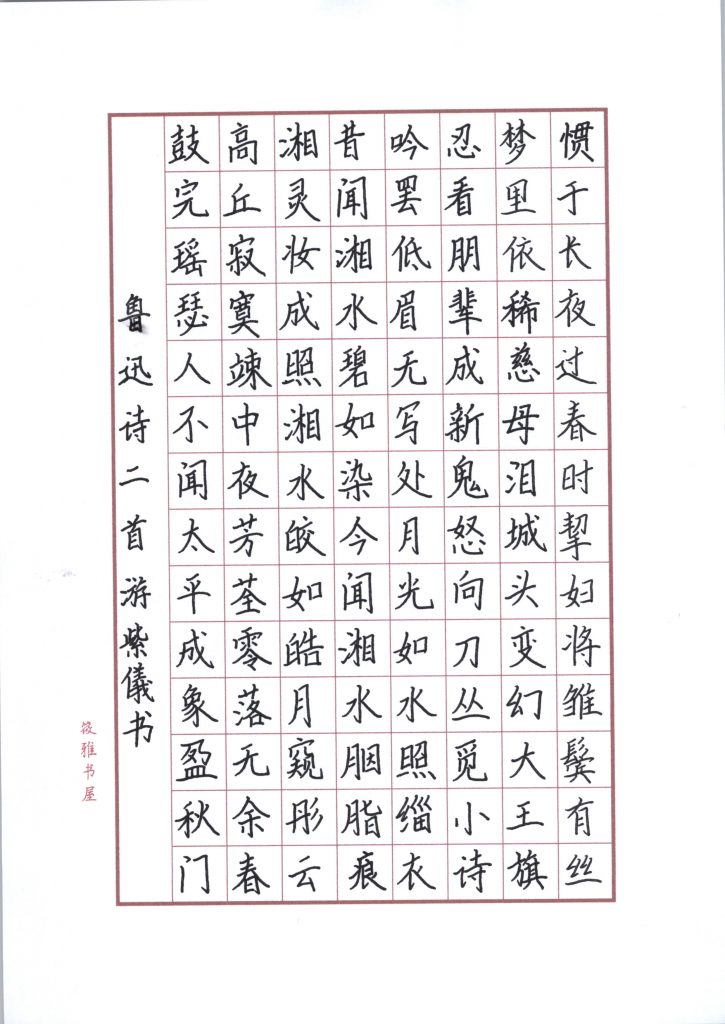 惯于长夜过春时挈妇将雏鬓有丝
梦里依稀慈母泪城头变幻大王旗
忍看朋辈成新鬼怒向刀丛觅小诗
吟罢低眉无写处月光如水照缁衣
昔闻湘水碧如染今闻湘水胭脂痕
湘灵妆成照湘水皎如皓月窥彤云
高丘寂寞竦中夜芳荃零落无余春
鼓完瑶瑟人不闻太平成象盈秋门
鲁迅诗二首游紫儀书
筱雅书屋